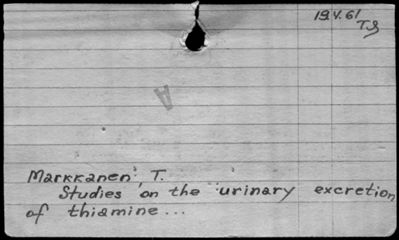 19.V.61
TS
A
Markkanen, T.
Studies on the urinary excretion
of thiamine...